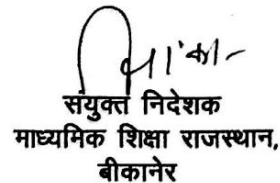 संयुक्त निदेशक
माध्यमिक शिक्षा राजस्थान,
बीकानेर